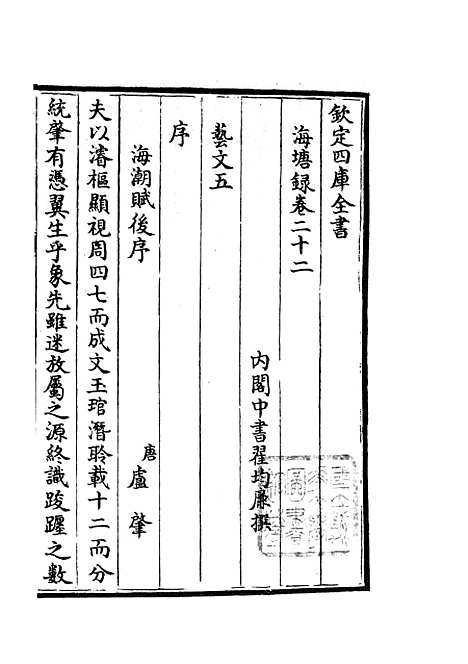 欽定四庫全書
海塘録卷二十二
內閣中書翟均廉撰
藝文五
序
海潮賦後序
唐 盧肇
夫以濬樞顯視周四七而成文玉琯潛聆載十二而分
統肇有憑翼生乎象先雖迷放屬之源終識踆躔之數